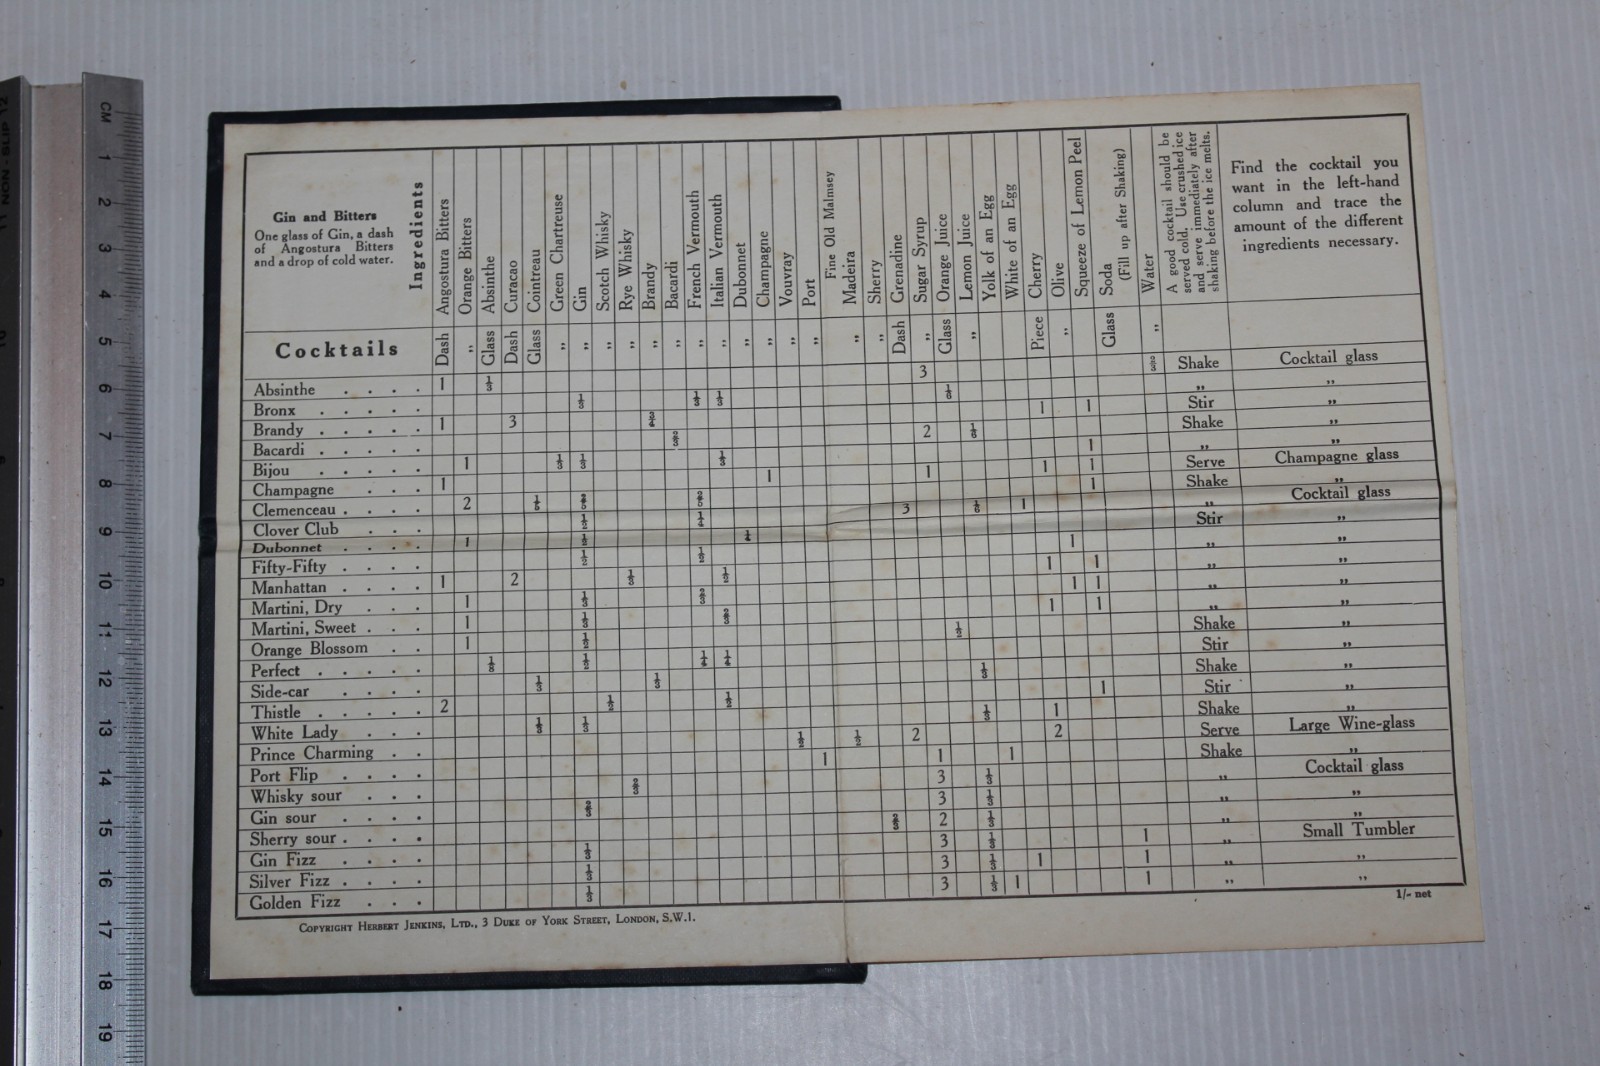 CM
1
2
3
4
5
6
7
8
9
10
11
12
13
14
15
16
17
18
19
NON-SLIP
12
Gin and Bitters
One glass of Gin, a dash
of Angostura Bitters
and a drop of cold water.
Ingredients
Angostura Bitters
Orange Bitters
Absinthe
Curacao
Cointreau
Green Chartreuse
Gin
Scotch Whisky
Rye Whisky
Brandy
Bacardi
French Vermouth
Italian Vermouth
Dubonnet
Champagne
Vouvray
Port
Fine Old Malmsey
Madeira
Sherry
Grenadine
Sugar Syrup
Orange Juice
Lemon Juice
Yolk of an Egg
White of an Egg
Cherry
Olive
Squeeze of Lemon Peel
Soda
(Fill up after Shaking)
Water
A good cocktail should be
served cold. Use crushed ice
and serve immediately after
shaking before the ice melts.
Find the cocktail you
want in the left-hand
column and trace the
amount of the different
ingredients necessary.
Cocktails
Dash „ Glass Dash Glass „ „ „ „ „ „ „ „ „ „ „ „ „ „ Dash „ Glass „ Piece „ Glass „
Absinthe . . . . 1 ⅓ 3 ⅔ Shake Cocktail glass
Bronx . . . . . ⅓ ⅓ ⅓ ⅓ „ „
Brandy . . . . . 1 3 1 1 Stir „
Bacardi . . . . . ⅔ 2 Shake „
Bijou . . . . . 1 ⅓ ⅓ ⅓ 1 „ „
Champagne . . . 1 1 1 1 1 Serve Champagne glass
Clemenceau . . . . 2 1 Shake „
Clover Club . . . 3 1 „ Cocktail glass
Dubonnet . . . . 1 Stir „
Fifty-Fifty . . . . 1 „ „
Manhattan . . . . 1 2 1 1 „ „
Martini, Dry . . . 1 ⅓ ⅔ 1 1 „ „
Martini, Sweet . . . 1 1 1 „ „
Orange Blossom . . 1 Shake „
Perfect . . . . Stir „
Side-car . . . . ⅓ ⅓ ⅓ Shake „
Thistle . . . . . 2 1 Stir „
White Lady . . . . ⅓ ⅓ ⅓ 1 Shake „
Prince Charming . . 2 2 Serve Large Wine-glass
Port Flip . . . . 1 1 1 Shake „
Whisky sour . . . 3 „ Cocktail glass
Gin sour . . . . 3 „ „
Sherry sour . . . . 2 „ „
Gin Fizz . . . . 3 1 „ Small Tumbler
Silver Fizz . . . . 3 1 1 „ „
Golden Fizz . . . 3 1 1 „ „
Copyright Herbert Jenkins, Ltd., 3 Duke of York Street, London, S.W.1.
1/- net